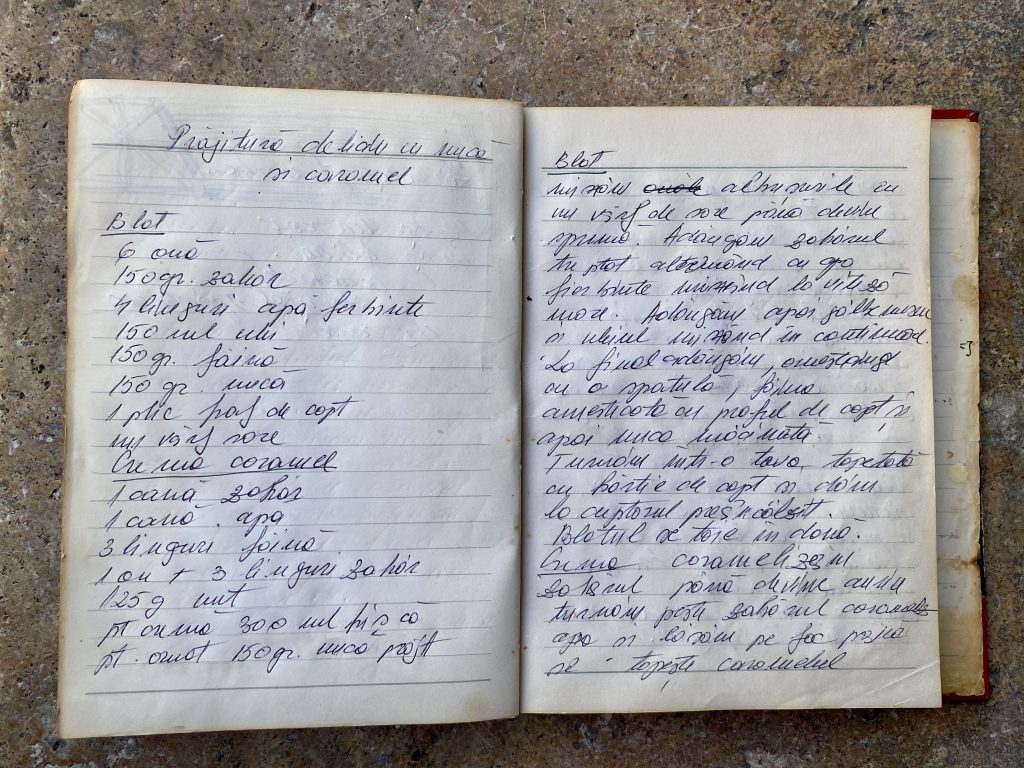 Prăjitură delidu cu nucă
si caramel
Blat
6 ouă
150gr. zahăr
4 linguri apă ferbinte
150 ml ulei
150gr. făină
150 gr. nucă
1 plic praf de copt
un vârf sare
Crema caramel
1 cană zahăr
1 cană apa
3 linguri făină
1 ou + 3 linguri zahăr
125g unt
pt cremă 300 ml frișcă
pt. ornat 150gr. nucă prăjit
Blat
mixăm ouăle albușurile cu
un vârf de sare până devin
spumă. Adăugăm zahărul
tu ptot alternând cu apa
fierbinte mixând la viteză
mare. Adăugăm apoi gălbenușu
si uleiul mixând în continuare.
La final adăugăm, amestecând
cu o spatula, făina
amestecată cu praful de copt și
apoi nuca măcinată.
Turnăm într-o tava tapetată
cu hârtie de copt si dăm
la cuptorul preîncălzit.
Blatul se taie în două.
Crema caramelizăm
zahărul până devine auriu
turnăm peste zahărul caramel
apa si lăsăm pe foc până
se topește caramelul